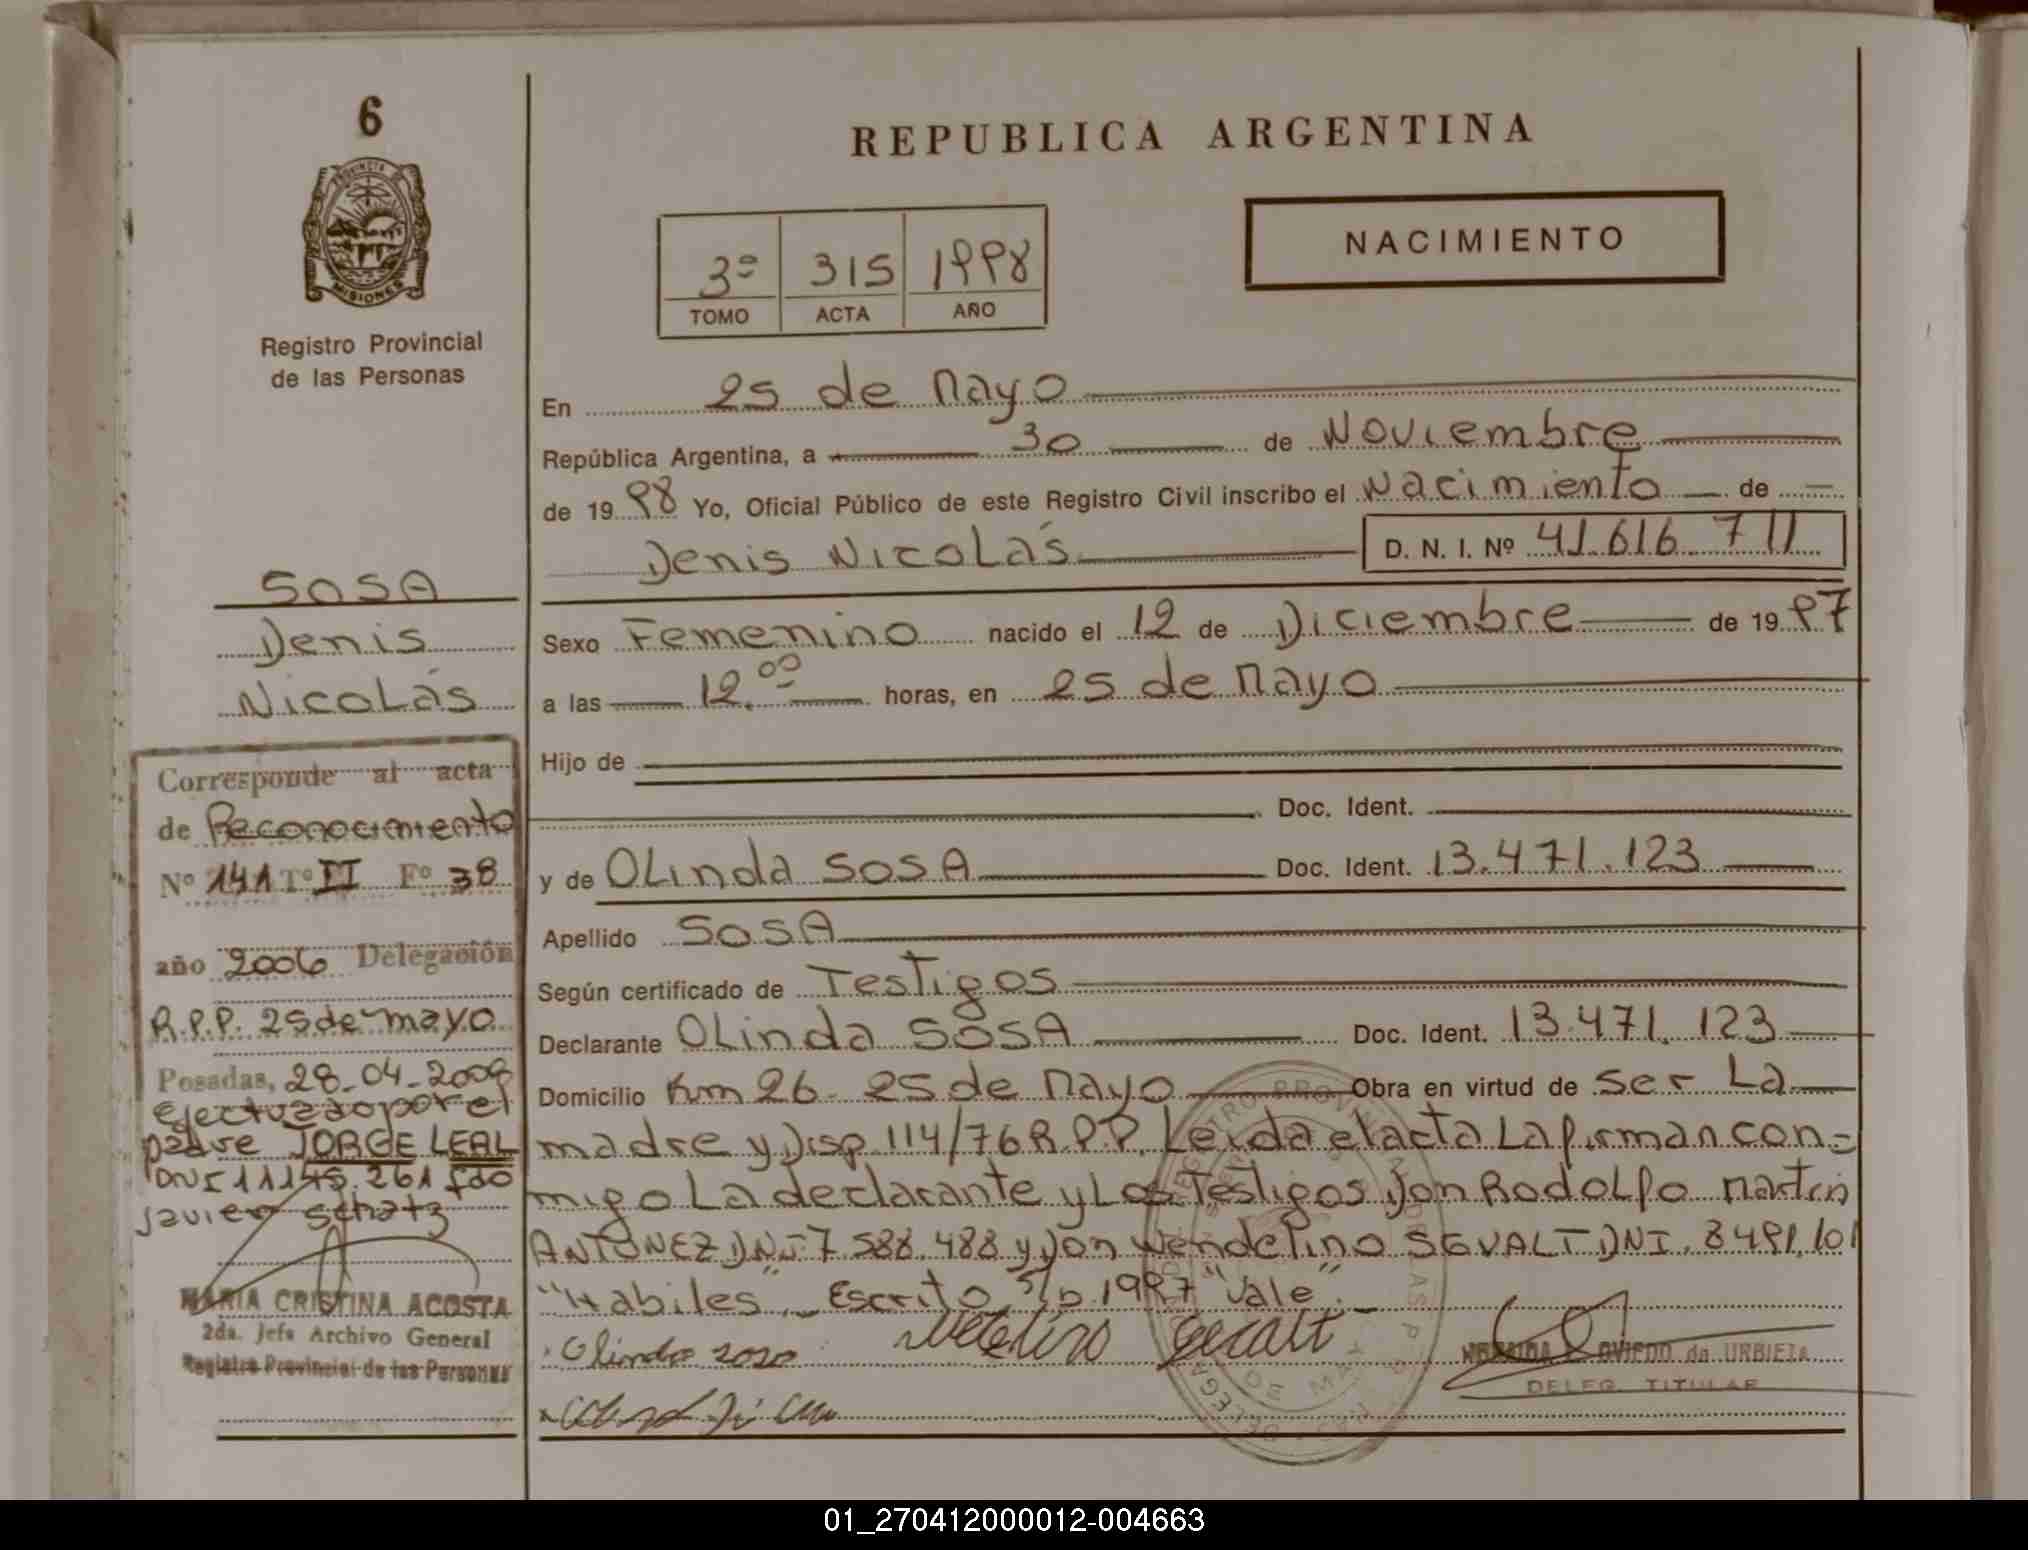 6
PROVINCIA DE
MISIONES
Registro Provincial
de las Personas
REPUBLICA ARGENTINA
NACIMIENTO
3º 315 1998
TOMO ACTA AÑO
En 25 de Mayo
República Argentina, a 30 de Noviembre
de 1998 Yo, Oficial Público de este Registro Civil inscribo el Nacimiento de
Denis Nicolás D. N. I. Nº 41.616.711
Sexo Femenino nacido el 12 de Diciembre de 1997
a las 12.00 horas, en 25 de Mayo
Hijo de
Doc. Ident.
y de Olinda SOSA Doc. Ident. 13.471.123
Apellido SOSA
Según certificado de Testigos
Declarante Olinda SOSA Doc. Ident. 13.471.123
Domicilio Km 26 - 25 de Mayo Obra en virtud de ser La
madre y Disp. 114/76 R.P.P. Leida el acta La firman con=
migo La declarante y Los Testigos Don Rodolfo Martin
ANTUNEZ DNI 7.588.488 y Don Wendelino SGVALT DNI. 8491.101
"Habiles" - Escrito s/b 1997 "Vale".-
Olinda Sosa
SOSA
Denis
Nicolás
Corresponde al acta
de Reconocimiento
Nº 141 Tº II Fº 38
año 2006 Delegación
R.P.P. 25 de mayo
Posadas, 28-04-2009
efectuado por el
padre JORGE LEAL
DNI 11145.261 fdo
Javier Schatz
MARIA CRISTINA ACOSTA
2da. Jefe Archivo General
Registro Provincial de las Personas
OVIEDO de URBIETA
DELEG. TITULAR
01_270412000012-004663